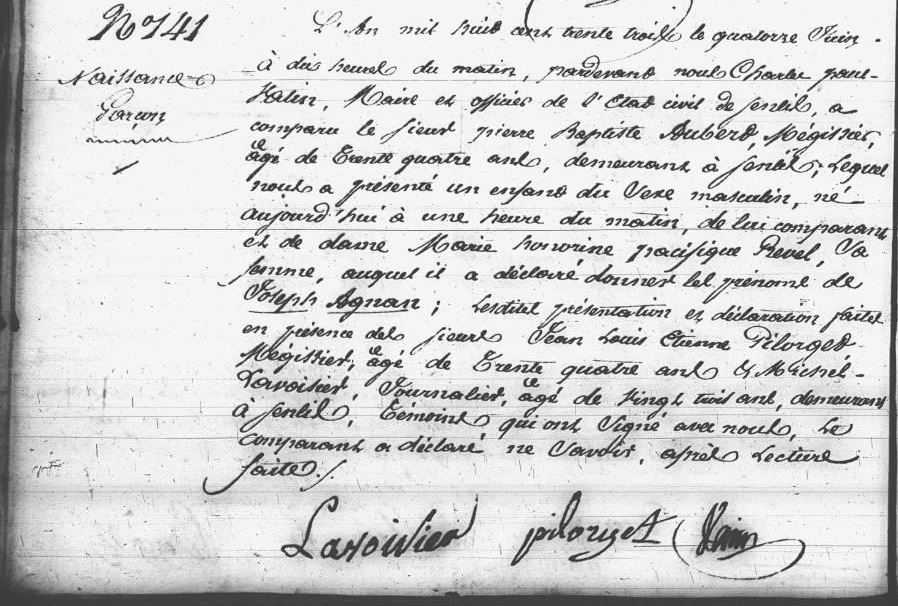 N° 141
Naissance
Garçon
L'An mil huit cent trente trois le quatorze Juin
à dix heures du matin, pardevant nous Charles paul
Vatin, Maire et officier de l'Etat civil de Senlis, a
comparu le sieur pierre Baptiste Aubert, Mégissier,
âgé de Trente quatre ans, demeurant à Senlis, Lequel
nous a présenté un enfant du Sexe masculin, né
aujourd'hui à une heure du matin, de lui comparant
et de dame Marie honorine pacifique Prevel, Sa
femme, auquel il a déclaré donner les prénoms de
Joseph Agnan ; Lesdites présentation et déclaration faites
en présence des sieurs Jean Louis Etienne Pilorget
Mégissier, âgé de Trente quatre ans & Michel
Lavoisier, Journalier, âgé de vingt trois ans, demeurans
à Senlis, Témoins qui ont Signé avec nous, Le
comparant a déclaré ne Savoir, après Lecture
faite ./.
Lavoisier pilorget Vatin